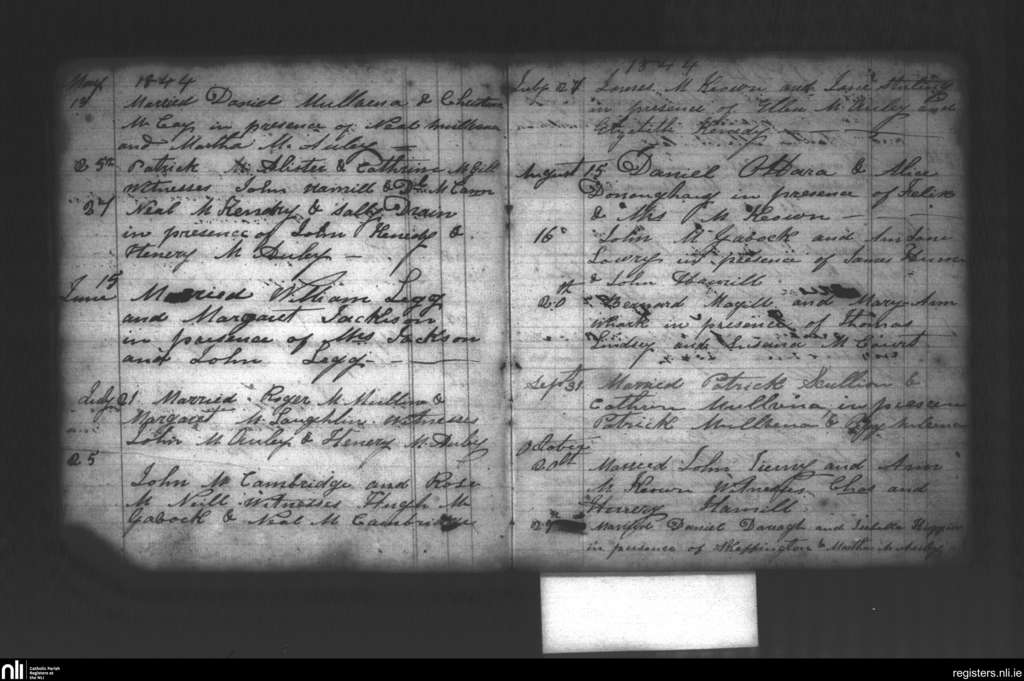 May 1844
13 Married Daniel Mulvena &
McCoy in presence of Neal Mulvena
and Martha McAuley
25th Patrick McAlister & Catherine McGill
Witnesses John Hamill & McCann
27 Neal McKendry & Sally Drain
in presence of John Kenedy &
Henery McAuley
June 15 Married William Legg
and Margaret Jackison
in presence of Mrs Jackson
and John Legg
July 21 Married Roger McMullan &
Margaret McLaughlin Witnesses
John McAuley & Henery McAuley
25
John McCambridge and Rose
McNeill Witnesses Hugh Mc
Gabock & Neal McCambridge
1844
July 27 James McKeown and Jane
in presence of Ellen McAuley and
Elizabeth Kenedy
August 15 Daniel O'Hara & Alice
Dononghay in presence of Felix
& Mrs McKeown
16 John McGabock and Ann Jane
Lowry in presence of James Hume
& John Hamill
20th Bernard Magill and Mary Ann
in presence of Thomas
Lindsey and Susana McCourt
Sept 31 Married Patrick Scullion &
Cathern Mulvina in presen
Patrick Mulvena &
October
20th Married John Tierny and Ann
McKeown Witnesses Chas and
Henery Hamill
27 Married Daniel Darragh and Isabella Higgins
in presence of Skeffington & Martha McAuley
nli
Catholic Parish
Registers at
the NLI
registers.nli.ie